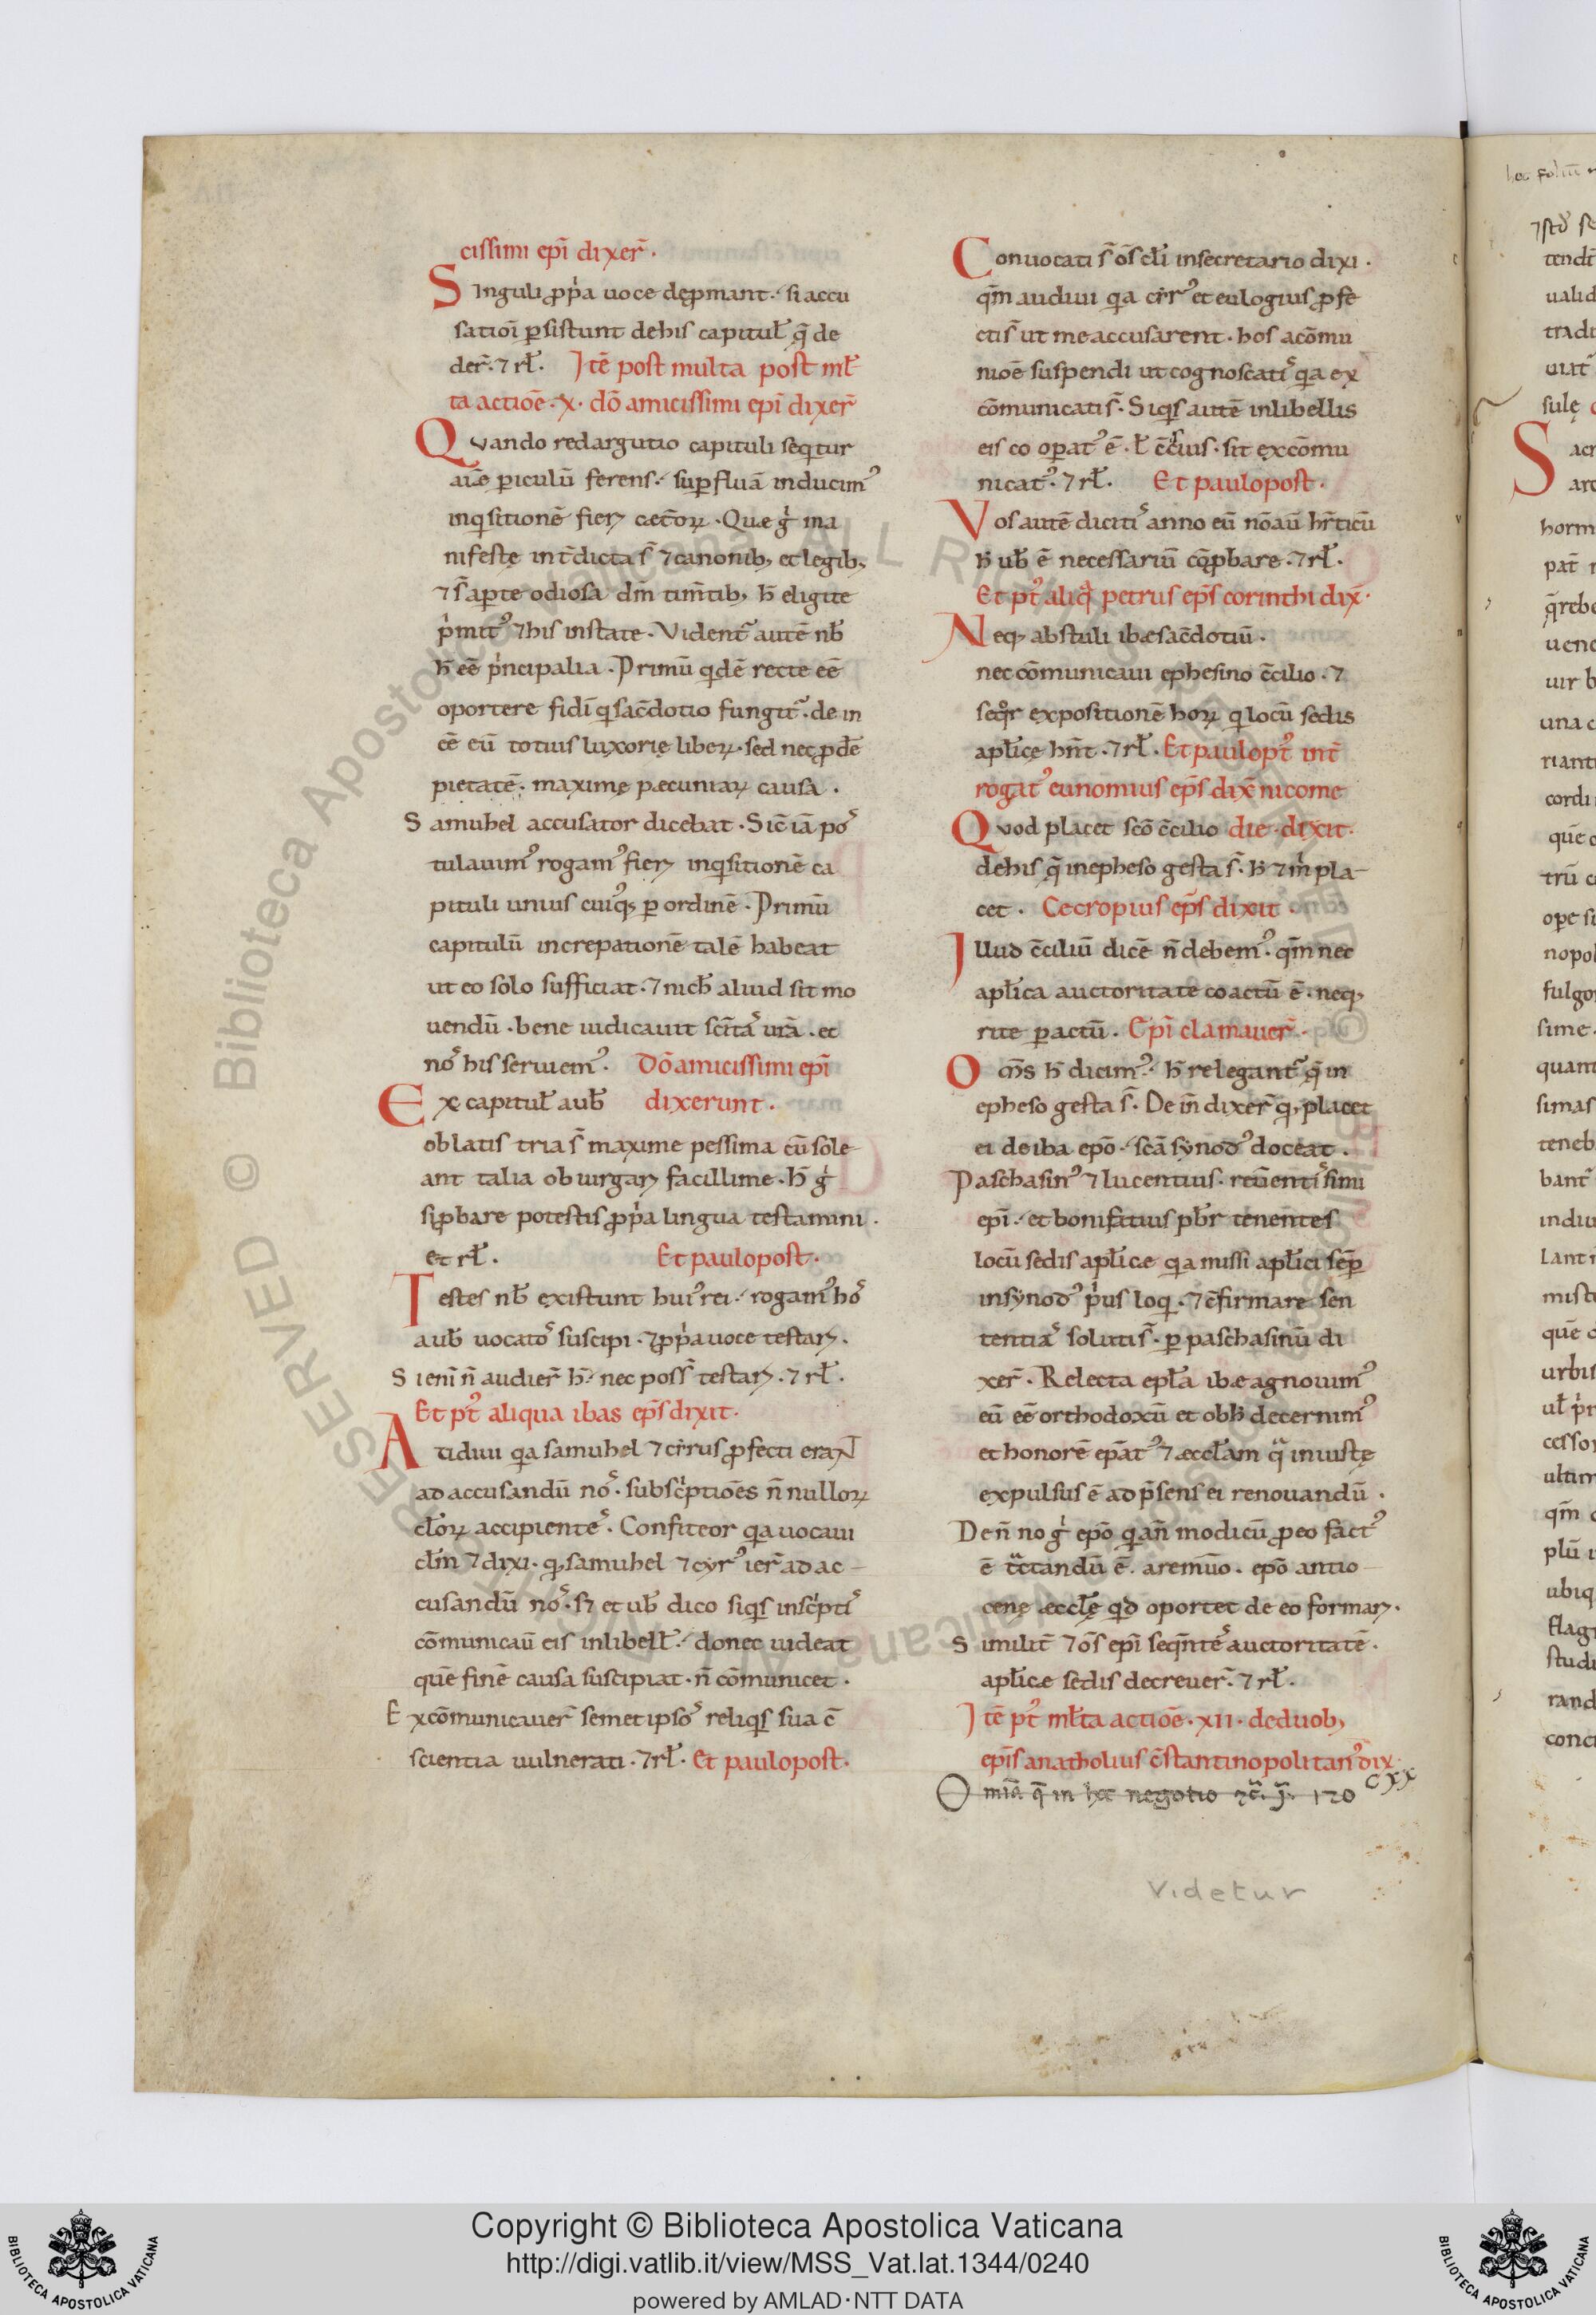 cissimi epī dixer̄.
Singuli ꝓp̍a uoce dep̱mant. si accu
satioī ꝑsistunt dehis capitul̄ q̄ de
der̄. ⁊ rł. Itē post multa post mł
ta actiōe. x. dō amicissimi epī dixer̄
Qvando redargutio capituli seqͥtur
aīe ꝑiculū ferens. suꝑfluā inducim᾿
inqͥsitionē fierꝫ
Quę g̍ ma
nifestę int̄dicta s̄ ⁊ canonibꝫ et legibꝫ
⁊ s̄ aꝑte odiosa dm̄ tim̄tibꝫ h̄ eligite
p̍mit᾿ ⁊ his instate. Vident̄ autē nb̄
h̄ eē p̍ncipalia. Primū qͥdē recte eē
oportere fidī qͥ sac̄dotio fungit᷑. de in
cē eū totius luxorię liberꝫ. sed nec ꝓdē
pietatē. maximę pecuniarꝫ causa.
Samuhel accusator dicebat. Sic̄ iā po᷒
tulauim᾿ rogam᾿ fierꝫ inqͥsitionē ca
pituli unius cui᾿qꝫ ꝑ ordinē. Primū
capitulū increpationē talē habeat
ut eo solo sufficiat. ⁊ nich̄ aliud sit mo
uendū. bene iudicauit sc̄ita᷒ ur̄a. et
no᷒ his seruiem᾿. Dō amicissimi epī
Ex capitul̄ aub̄ dixerunt.
oblatis tria s̄ maxime pessima cū sole
ant talia obiurgarꝫ facillime. h̄ g̍
si ꝓbare potestis ꝓp̍a lingua testamini.
et rł. Et paulopost.
Testes nb̄ existunt hui᾿ rei. rogam᾿ ho᷒
aub̄ uocato᷒ suscipi. ⁊ ꝓp̍a uoce testarꝫ.
Si enī n̄ audier̄ h̄. nec poss̄ testarꝫ. ⁊ rł.
Et pt᾿ aliqua ibas ep̄s dixit.
Audiui qͣa samuhel ⁊ cirrus ꝓfecti eraNT
ad accusandū no᷒. subsc̍ptiōes n̄ nullorꝫ
cl̄orꝫ accipiente᷒. Confiteor qͣa uocaui
cl̄m ⁊ dixi. qꝫ samuhel ⁊ cyr᾿ ier̄ ad ac
cusandū no᷒. sꝫ et ub̄ dico siqͥs insc̍pti᷒
cōmunicau᷑ eis in libell̄. donec uideat
quē finē causa suscipiat. n̄ cōmunicet.
Excōmunicauer̄ semetipso᷒ reliqͥs sua c̄
scientia uulnerati. ⁊ rł. Et paulopost.
Conuocati s̄ os̄ cl̄i in secretario dixi.
qm̄ audiui qͣa cirr᾿ et eulogius ꝓfe
cti s̄ ut me accusarent. hos a cōmu
niōe suspendi ut cognoscati᷒ qͣa ex
cōmunicati s̄. Siqͥs autē in libellis
eis cooꝑat᾿ ē. ł c̄scius. sit excōmu
nicat᾿. ⁊ rł. Et paulopost.
Vos autē diciti᷒ anno eū nōau᷑ hr̄ticū
h̄ ub̄ ē necessariū cōꝓbare. ⁊ rł.
Et pt᾿ aliqͣ petrus ep̄s corinthi dix̄.
Neqꝫ abstuli ibę sac̄dotiū.
nec cōmunicaui ephesino c̄cilio. ⁊
seqͦr expositionē horꝫ qͥ locū sedis
apl̄icę hn̄t. ⁊ rł. Et paulopt᾿ int̄
rogat᾿ eunomius ep̄s dix̄ nicome
Qvod placet scō c̄cilio die. dixit.
dehis q̄ in epheso gesta s̄. h̄ ⁊ m̍ pla
cet. Cecropius ep̄s dixit.
Illud c̄ciliū dicē n̄ debem᾿. qm̄ nec
apl̄ica auctoritate coactū ē. neqꝫ
rite ꝑactū. Epī clamauer̄.
Om̄s h̄ dicim᾿. h̄ relegant᷑ q̄ in
epheso gesta s̄. De in̄ dixer̄ qꝫ placet
ei de iba epō. scā synod᾿ doceat.
Paschasin᾿ ⁊ lucentius. reuēnti᷒simi
epī. et bonifatius pb̄r tenentes
locū sedis apl̄icę qͣa missi apl̄ici sēꝑ
in synod᾿ p̍us loqͥ. ⁊ c̄firmare sen
tentia᷒ soliti s̄. ꝑ paschasinū di
xer̄. Relecta epl̄a ibę agnouim᾿
eū eē orthodoxū et ob h̄ decernim᾿
et honorē epāt᾿ ⁊ ęccl̄am qͣ iniustę
expulsus ē ad p̄sens ei renouandū.
De n̄ no g̍ epō qͥ an̄ modicū ꝓ eo fact᾿
ē tͣctandū ē. a reuēmo. epō antio
cenę ęccl̄ę qd̄ oportet de eo formarꝫ.
Similit̄ ⁊ os̄ epī seqn̄te᷒ auctoritatē.
apl̄icę sedis decreuer̄. ⁊ rł.
Itē pt᾿ mł̄ta actiōe. xii. deduobꝫ
epīs anatholius c̄stantinopolitan᾿ dix̄.
Omia q̄ in hoc negotio 120 cxx
Videtur
Copyright © Biblioteca Apostolica Vaticana
http://digi.vatlib.it/view/MSS_Vat.lat.1344/0240
powered by AMLAD·NTT DATA
BIBLIOTECA APOSTOLICA VATICANA
BIBLIOTECA APOSTOLICA VATICANA